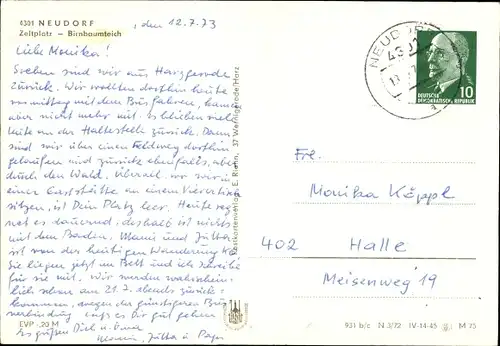 4301 NEUDORF
Zeltplatz – Birnbaumteich
, den 12.7.73
Liebe Monika!
Soeben sind wir aus Harzgerode
zurück. Wir wollten dorthin heute
vormittag mit dem Bus fahren, kamen
aber nicht mehr mit. Es blieben viel
Leute an der Haltestelle zurück. Dann
sind wir über einen Feldweg dorthin
gelaufen und zurück ebenfalls, aber
durch den Wald. Überall, wo wir in
einer Gaststätte an einem Vierertisch
sitzen, ist Dein Platz leer. Heute reg-
net es dauernd, deshalb ist nichts
mit dem Baden. Mama und Jutta
ist von der heutigen Wanderung k.o.
Sie liegen jetzt im Bett und ich schreibe
für sie mit. Wir werden wahrschein-
lich schon am 21.7. abends zurück-
kommen, wegen der günstigeren Bus-
verbindung. Laß es Dir gut gehen.
Es grüßen Dich
Jutta u. Papa
EVP -,20 M
Postkartenverlag E. Riehn, 37 Wernigerode/Harz
NEUDORF
4301
DEUTSCHE
DEMOKRATISCHE REPUBLIK
10
Frl.
Monika Käppl
402 Halle
Meisenweg 19
931 b/c N 3/72 IV-14-45 M 75